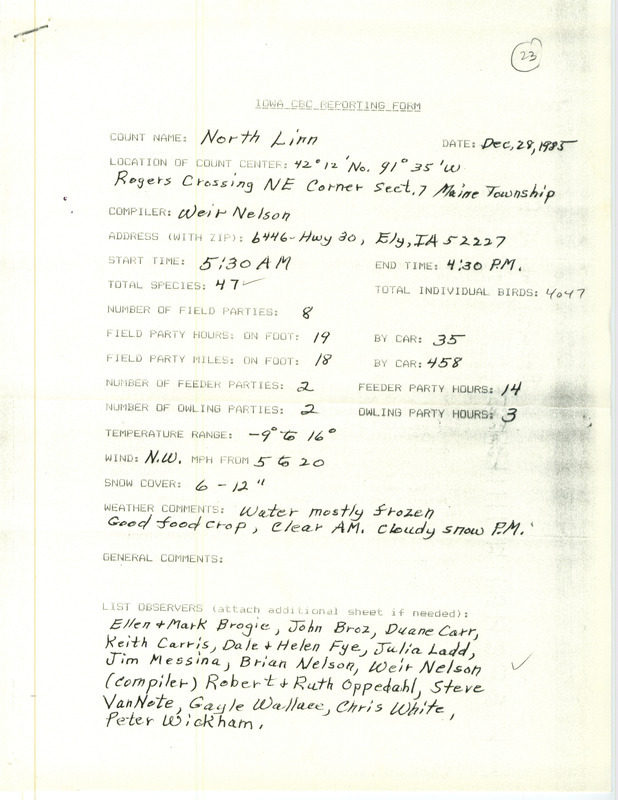 23
IOWA CBC REPORTING FORM
COUNT NAME: North Linn DATE: Dec, 28, 1985
LOCATION OF COUNT CENTER: 42° 12' No. 91° 35' W
Rogers Crossing NE Corner Sect. 7 Maine Township
COMPILER: Weir Nelson
ADDRESS (WITH ZIP): 6446-Hwy 30, Ely, IA 52227
START TIME: 5:30 AM END TIME: 4:30 P.M.
TOTAL SPECIES: 47 ✓ TOTAL INDIVIDUAL BIRDS: 4047
NUMBER OF FIELD PARTIES: 8
FIELD PARTY HOURS: ON FOOT: 19 BY CAR: 35
FIELD PARTY MILES: ON FOOT: 18 BY CAR: 458
NUMBER OF FEEDER PARTIES: 2 FEEDER PARTY HOURS: 14
NUMBER OF OWLING PARTIES: 2 OWLING PARTY HOURS: 3
TEMPERATURE RANGE: -9° to 16°
WIND: N.W. MPH FROM 5 to 20
SNOW COVER: 6 - 12"
WEATHER COMMENTS: Water mostly frozen
Good food crop, Clear AM. cloudy snow P.M.
GENERAL COMMENTS:
LIST OBSERVERS (attach additional sheet if needed):
Ellen + Mark Brogie, John Broz, Duane Carr,
Keith Carris, Dale + Helen Fye, Julia Ladd,
Jim Messina, Brian Nelson, Weir Nelson ✓
(compiler) Robert + Ruth Oppedahl, Steve
VanNote, Gayle Wallace, Chris White,
Peter Wickham.